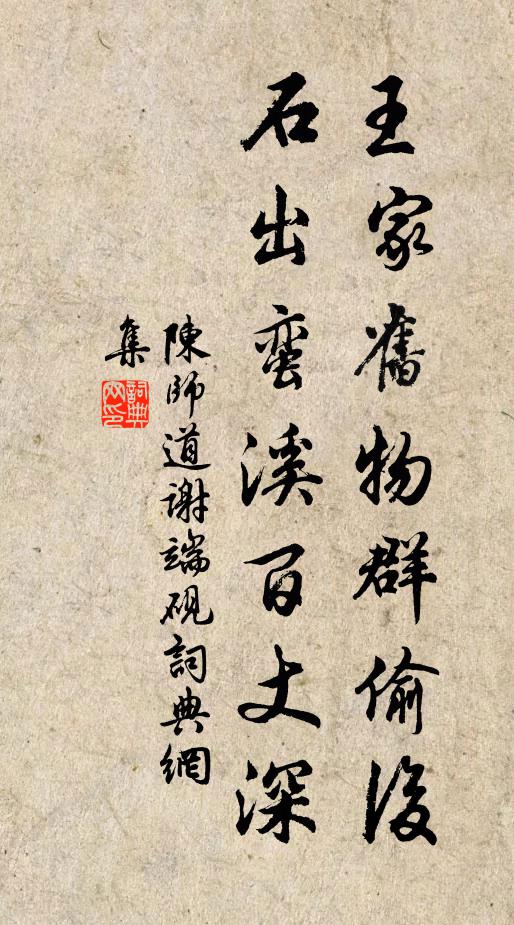 王家舊物群偷後
石出蠻溪百丈深
陳師道謝端硯詞典網
集
詞典
网印